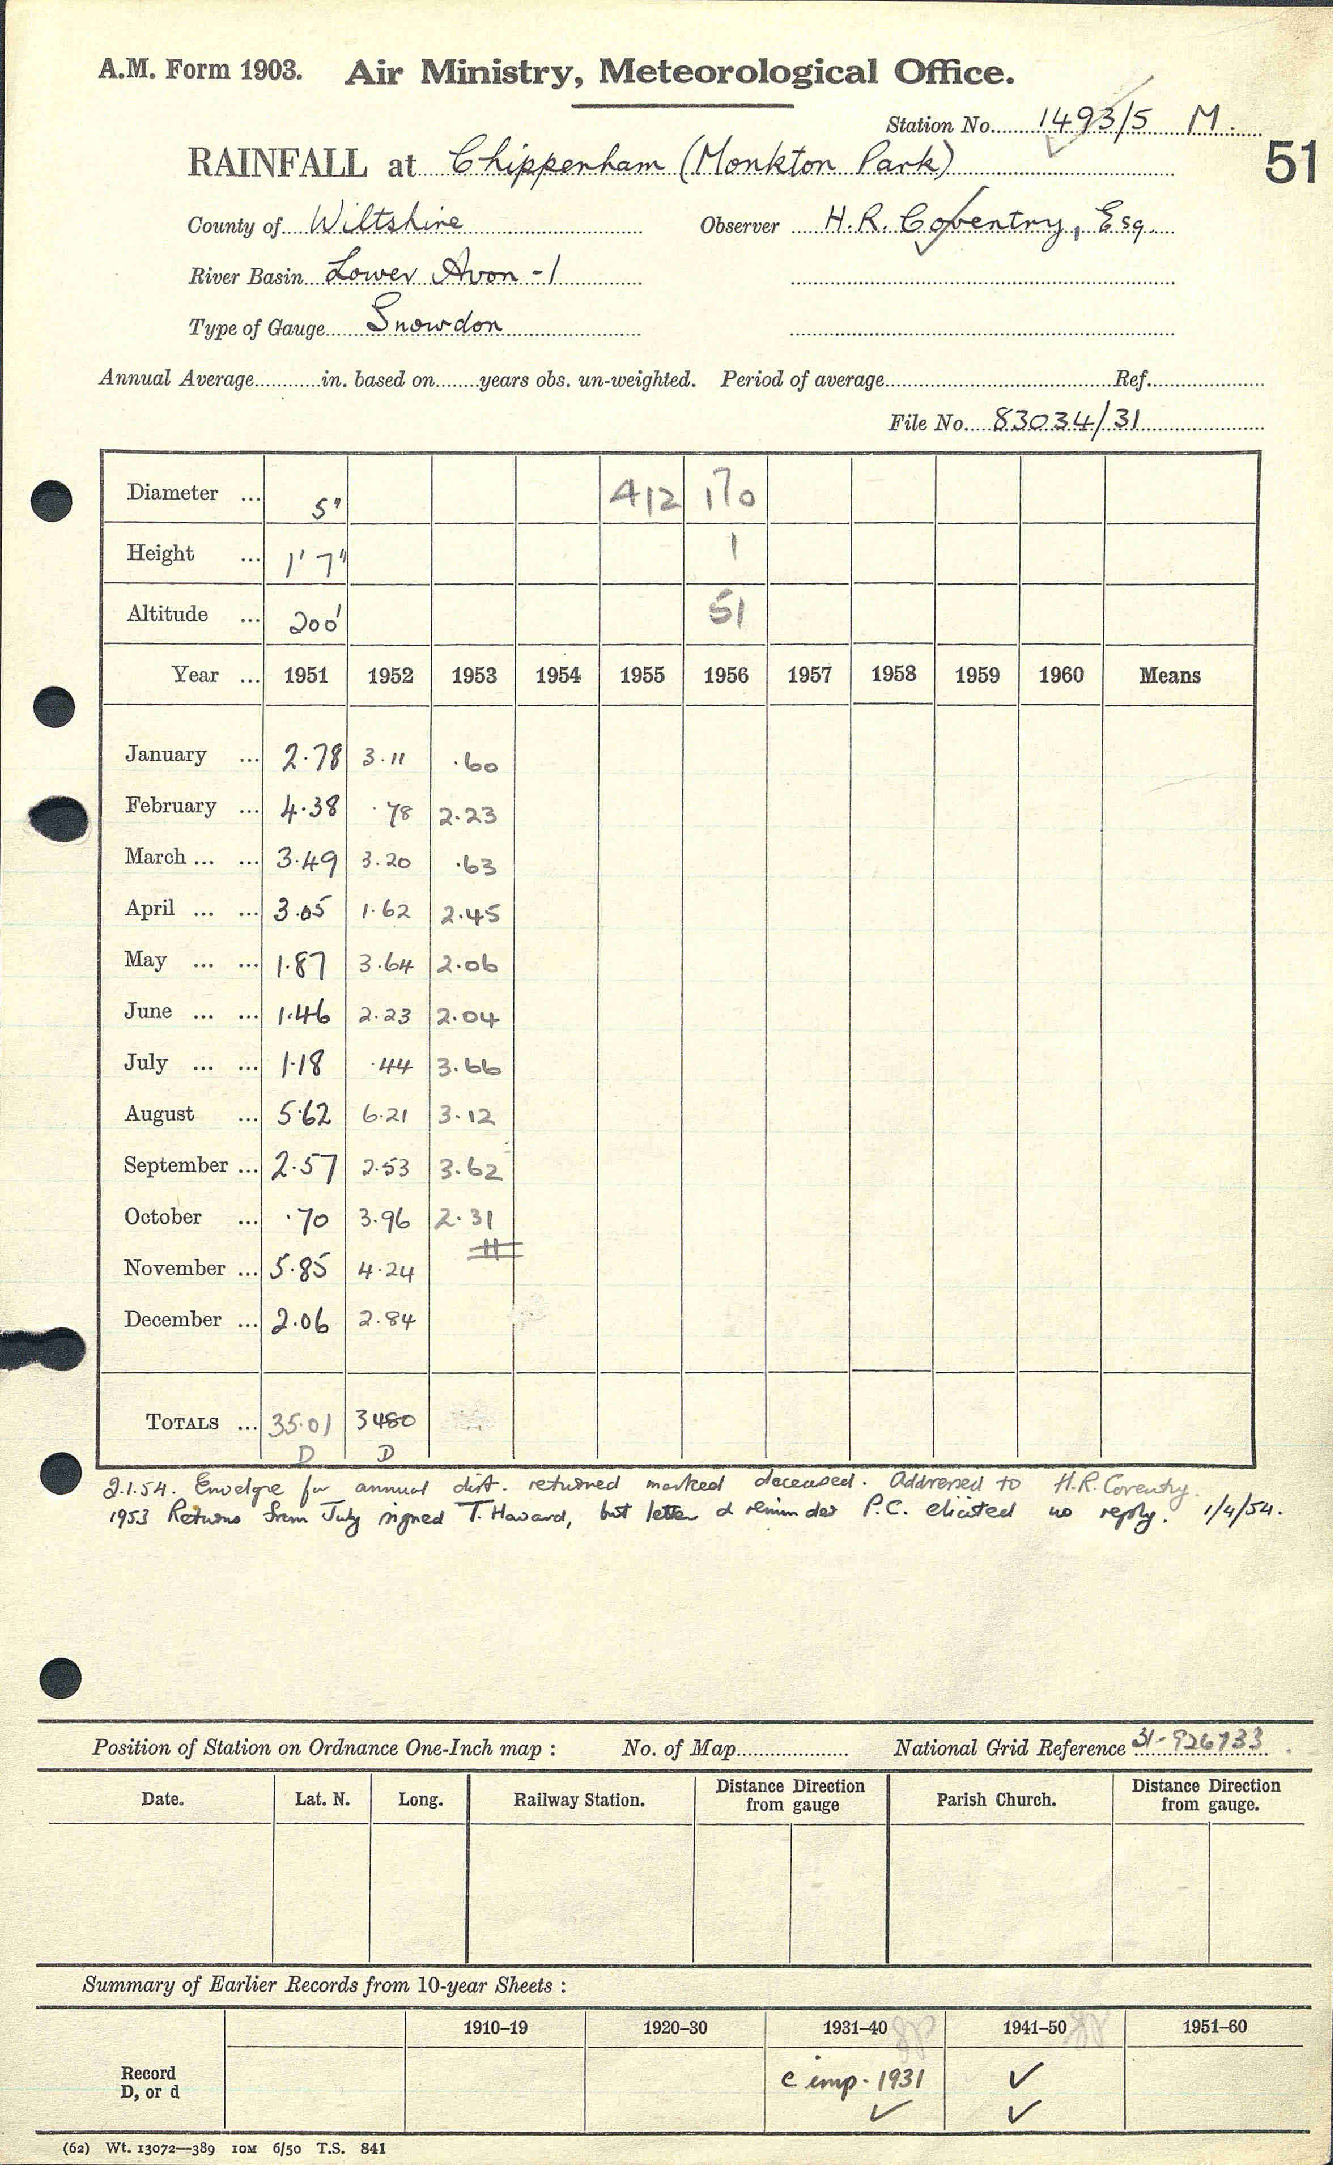 A.M. Form 1903. Air Ministry, Meteorological Office.
Station No. 1493/5 M.
51
RAINFALL at Chippenham (Monkton Park)
County of Wiltshire Observer H.R. Coventry, Esq.
River Basin Lower Avon - 1
Type of Gauge Snowdon
Annual Average in. based on years obs. un-weighted. Period of average Ref.
File No. 83034/31
Diameter ... 5" 412 170
Height ... 1' 7" 1
Altitude ... 200' 51
Year ... 1951 1952 1953 1954 1955 1956 1957 1958 1959 1960 Means
January ... 2.78 3.11 .60
February ... 4.38 .78 2.23
March ... ... 3.49 3.20 .63
April ... ... 3.05 1.62 2.45
May ... ... 1.87 3.64 2.06
June ... ... 1.46 2.23 2.04
July ... ... 1.18 .44 3.66
August ... 5.62 6.21 3.12
September ... 2.57 2.53 3.62
October ... .70 3.96 2.31
November ... 5.85 4.24
December ... 2.06 2.84
TOTALS ... 35.01 3480
D D
2.1.54. Envelope for annual dist. returned marked deceased. Addressed to H.R. Coventry.
1953 Returns from July signed T. Haward, but letter & reminder P.C. elicited no reply. 1/4/54.
Position of Station on Ordnance One-Inch map : No. of Map National Grid Reference 31-926733
Date. Lat. N. Long. Railway Station. Distance Direction from gauge Parish Church. Distance Direction from gauge.
Summary of Earlier Records from 10-year Sheets :
1910-19 1920-30 1931-40 1941-50 1951-60
Record D, or d c imp. 1931 ✓
✓ ✓
(62) Wt. 13072—389 10M 6/50 T.S. 841